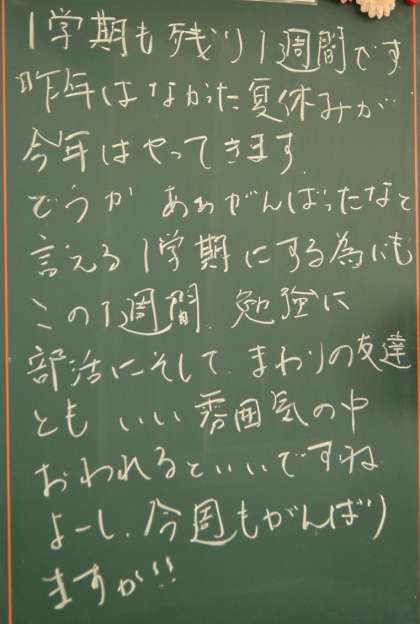 1学期も残り1週間です
昨年はなかった夏休みが
今年はやってきます.
どうか あぁがんばったなと
言える1学期にする為にも
この1週間、勉強に
部活にそして、まわりの友達
とも いい雰囲気の中
おわれるといいですね
よーし、今週もがんばり
ますか!!